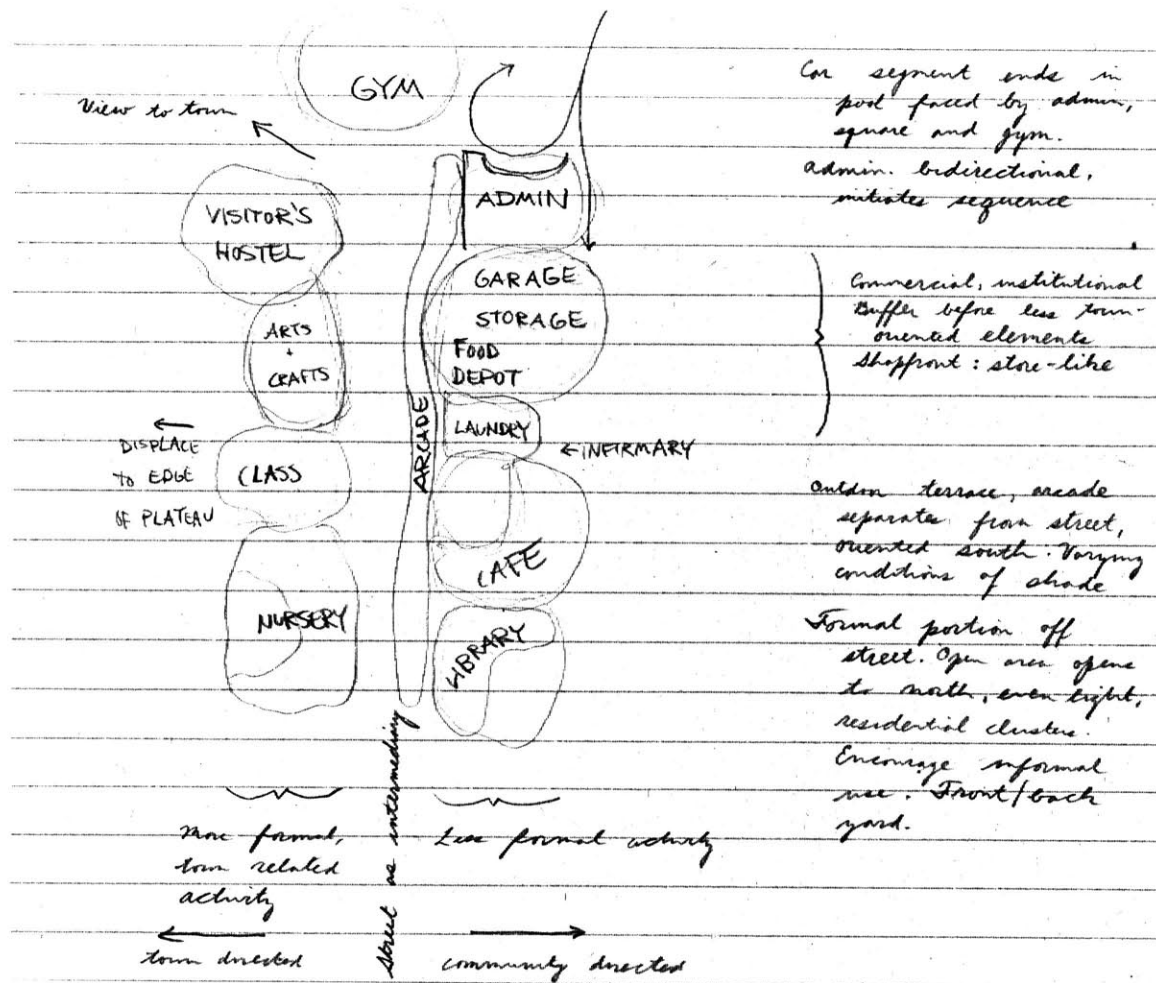 GYM
View to town
VISITOR'S
HOSTEL
ARTS
+
CRAFTS
← DISPLACE
TO EDGE
OF PLATEAU
CLASS
NURSERY
ARCADE
ADMIN
GARAGE
STORAGE
FOOD
DEPOT
LAUNDRY
← INFIRMARY
CAFE
LIBRARY
Street as intermediary
More formal,
town related
activity
Less formal activity
town directed
community directed
Car segment ends in
pool faced by admin,
square and gym.
admin. bidirectional,
initiates sequence
Commercial, institutional
Buffer before less town-
oriented elements
Shopfront: store-like
Outdoor terrace, arcade
separates from street,
oriented south. Varying
conditions of shade
Formal portion off
street. Open area opens
to north, even light,
residential clusters.
Encourage informal
use. Front/back
yard.